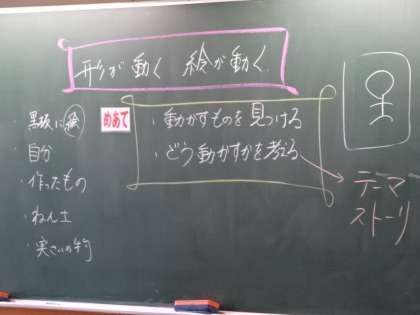 形が動く 絵が動く
めあて
・動かすものを見つける
・どう動かすかを考える
テーマ
ストーリー
・黒板に絵
・自分
・作ったもの
・ねん土
・実さいの物